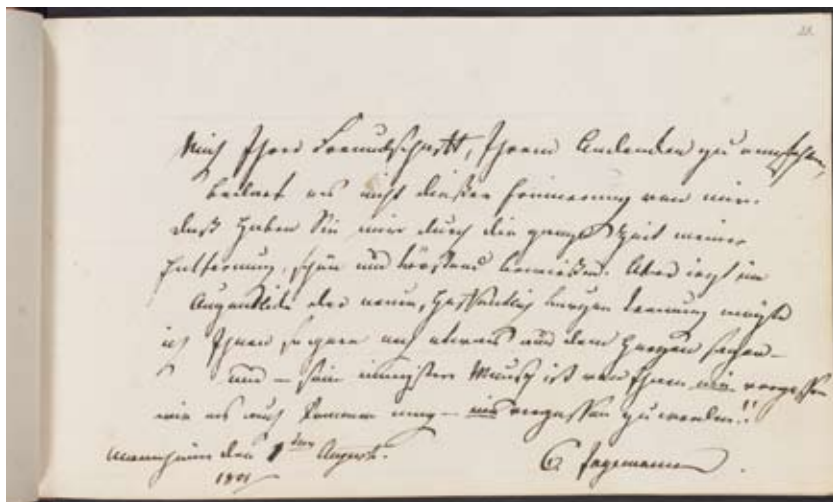 28.
Mich Ihrer Freundschafft, Ihrem Andenken zu empfehlen,
bedarf es nicht dießer Erinnerung von mir.
daß haben Sie mir durch die ganze Zeit meiner
Entfernung, schön und tröstend bewießen. Aber iezt im
Augenblick der neuen, hoffentlich kurzen trennung mögte
ich Ihnen so gern noch etwas aus dem Herzen sagen –
und – sein innigster Wunsch ist von Ihnen nie vergessen
wie es auch kommen mag – nie vergessen zu werden!!
Mannheim den 1ten August.
1801
C. Jagemann.